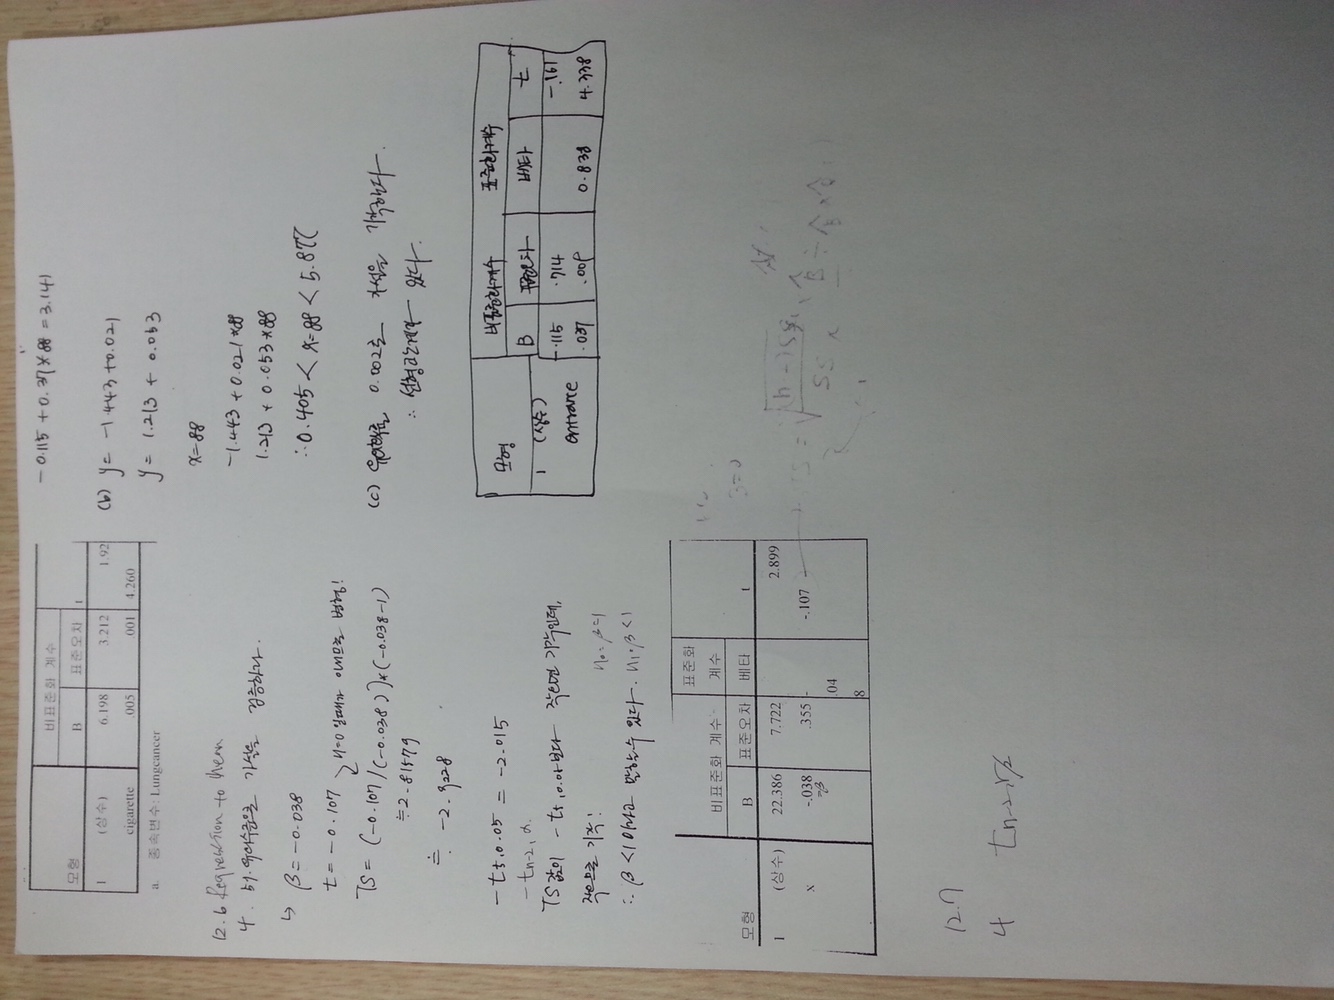 비표준화 계수
모형 B 표준오차 t
1 (상수) 6.198 3.212 1.92
cigarette .005 .001 4.260
a. 종속변수: Lungcancer
12.6 Regression to Mean
4. 5% 유의수준으로 가설을 검증하라.
↳ β = -0.038
t = -0.107
TS = (-0.107/(-0.038))*(-0.038-1)
≒2.81579
≒ -2.9228
-t5,0.05 = -2.015
-tn-2, α.
TS값이 -t5,0.05보다 작으면 기각인데,
작으므로 기각!
H0: β=1
∴ β<1 이라고 말할수 있다. H1: β<1
표준화
비표준화 계수 계수
모형 B 표준오차 베타 t
1 (상수) 22.386 7.722 2.899
x -.038 .355 - -.107
=β
.04
8
12.7
4 tn-2, r/2
-0.115 + 0.37*88 = 3.141
(b) y = -1.443 + 0.021
y = 1.213 + 0.053
x=88
-1.443 + 0.021*88
1.213 + 0.053*88
∴ 0.405 < x=88 < 5.877
(c) 유의확률 0.002로 가설을 기각한다.
∴ 선형관계가 있다.
비표준화계수 표준화계수
모형 B 표준오차 베타 t
1 (상수) -.115 .714 -.161
entrance .037 .009 0.838 4.338